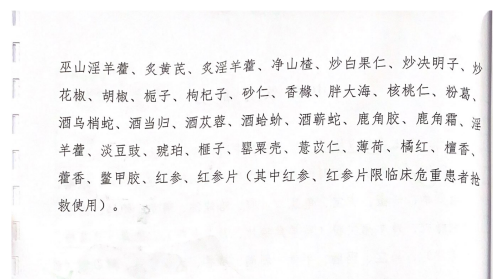 巫山淫羊藿、炙黄芪、炙淫羊藿、净山楂、炒白果仁、炒决明子、炒
花椒、胡椒、栀子、枸杞子、砂仁、香橼、胖大海、核桃仁、粉葛、
酒乌梢蛇、酒当归、酒苁蓉、酒蛤蚧、酒蕲蛇、鹿角胶、鹿角霜、淫
羊藿、淡豆豉、琥珀、榧子、罂粟壳、薏苡仁、薄荷、橘红、檀香、
藿香、鳖甲胶、红参、红参片（其中红参、红参片限临床危重患者抢
救使用）。